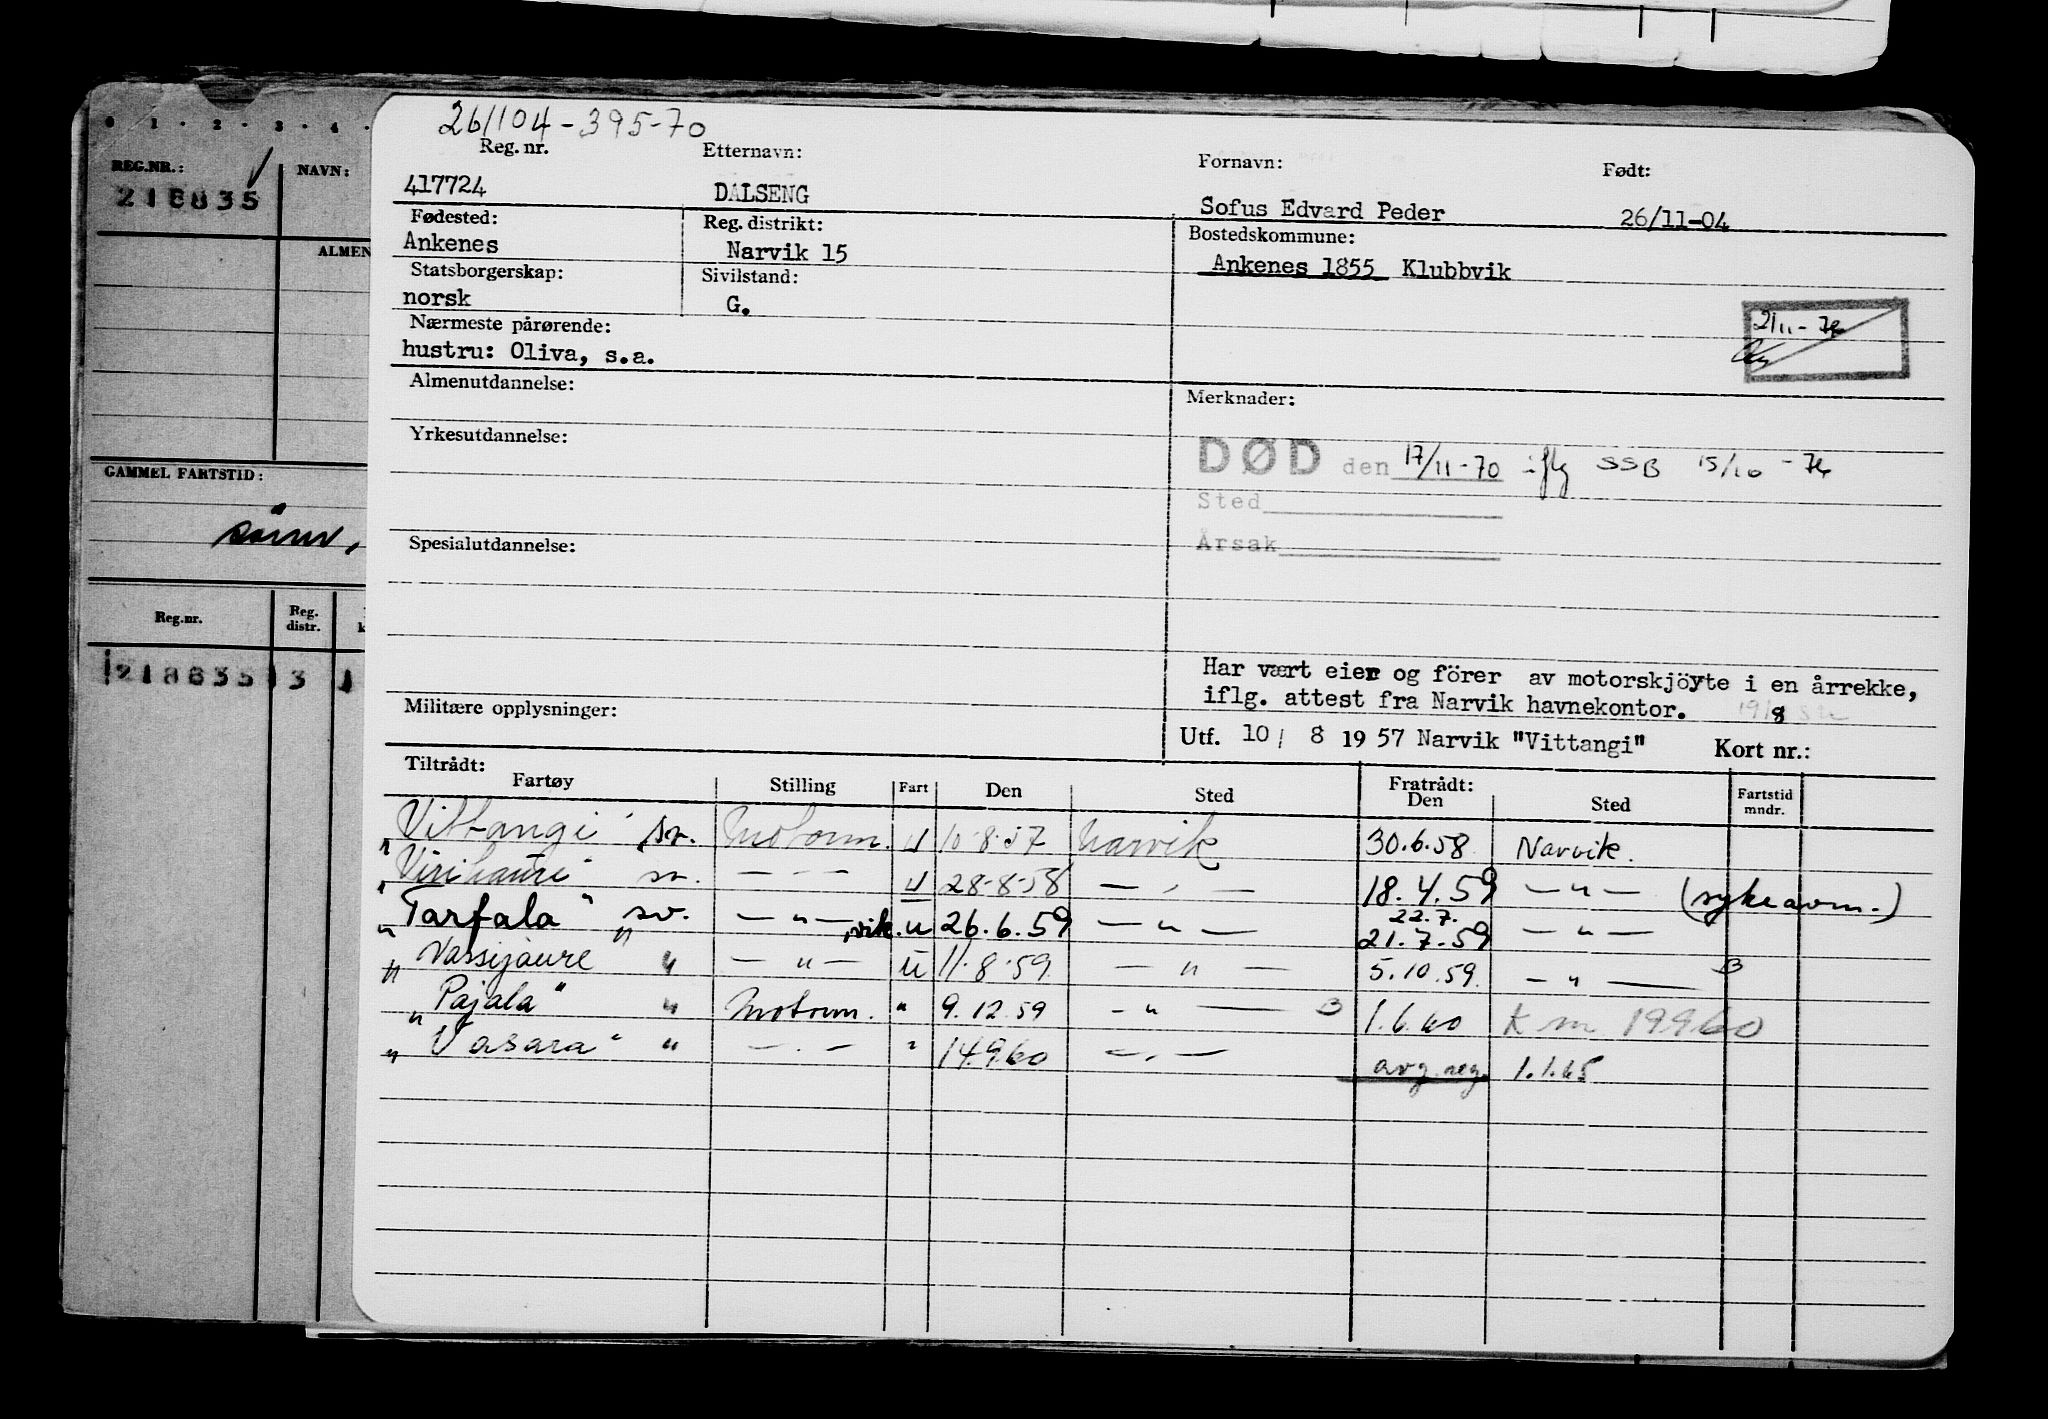 26/104-395-70
Reg. nr. Etternavn: Fornavn: Født:
417724 DALSENG Sofus Edvard Peder 26/11-04
Fødested: Reg. distrikt: Bostedskommune:
Ankenes Narvik 15 Ankenes 1855 Klubbvik
Statsborgerskap: Sivilstand:
norsk G.
Nærmeste pårørende:
hustru: Oliva, s.a.
Almenutdannelse: Merknader:
Yrkesutdannelse:
DØD den 17/11-70 iflg SSB 15/10-74
Sted
Årsak
Spesialutdannelse:
Har vært eier og förer av motorskjöyte i en årrekke,
iflg. attest fra Narvik havnekontor.
Militære opplysninger:
Utf. 10/ 8 1957 Narvik "Vittangi" Kort nr.:
Tiltrådt: Fratrådt:
Fartøy Stilling Fart Den Sted Den Sted Fartstid mndr.
"Vittangi" sv. Motorm. U 10.8.57 Narvik 30.6.58 Narvik.
"Virihaure" sv. — " — U 28-8-58 — " — 18.4.59 — " — (sykeavm.)
22.7.
"Tarfala" sv. — " — , vik. u 26.6.59 — " — 21.7.59 — " —
"Vassijaure" " — " — U 11.8.59 — " — 5.10.59. — " — B
"Pajala" " Motorm. " 9.12.59 — " — B 1.6.60 K m 19960
"Vasara" " — . — " 14.9.60 — . — avg. reg. 1.1.65
0 1 . 2 . 3 . 4 .
REG.NR.: NAVN:
218835
ALMEN
GAMMEL FARTSTID:
Reg.nr. Reg. distr.
218835 3 1